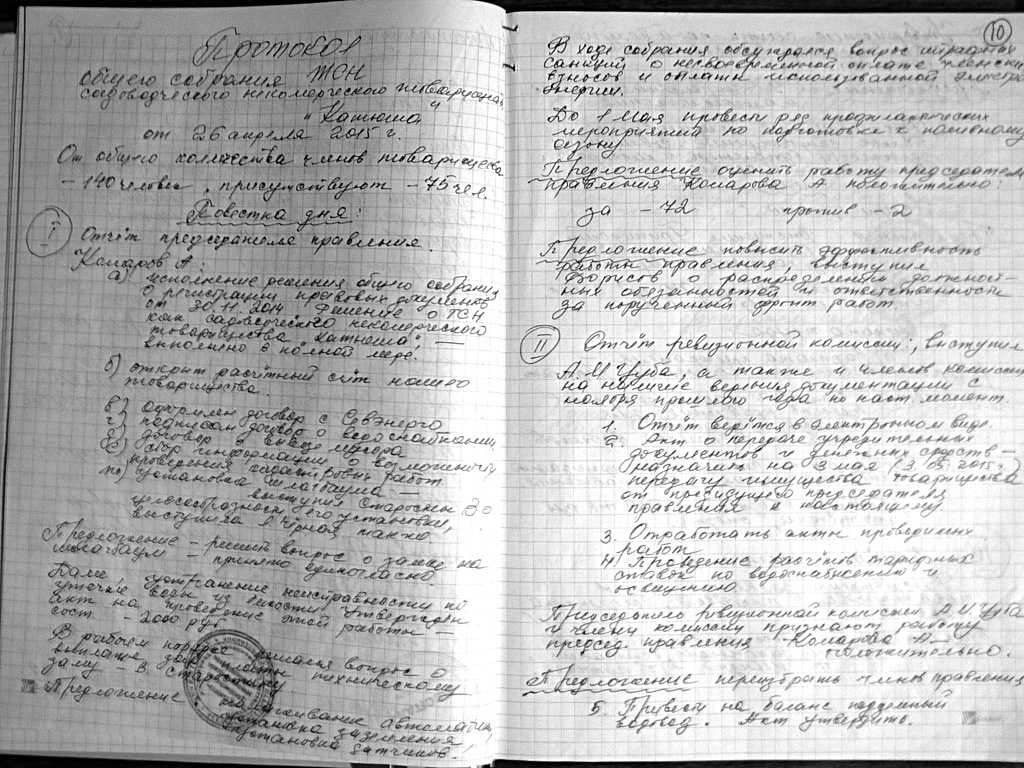 Протокол
общего собрания ТСН
садоводческого некомерческого товарищества
"Катюша"
от 26 апреля 2015 г.
От общего количества членов товарищества
- 140 человек, присутствуют - 75 чел.
Повестка дня:
I Отчёт председателя правления.
Комаров А:
а) исполнение решения общего собрания
о регистрации правовых документов
от 30.11.2014 решение о ТСН
как садоводческого некомерческого
товарищества "Катюша", —
выполнено в полной мере.
б) открыт расчётный счёт нашего
товарищества.
в) оформлен договор с Севэнерго
г) подписан договор о водоснабжении
договор о вывозе мусора
сбор информации о возможности
проведения кадастровых работ
установка шлагбаума —
выступил Старостин В о
целесообразности его установки,
выступила Чёрная также
Предложение - решить вопрос о замке на
шлагбаум - принято единогласно
Дали устранение неисправности по
утечке воды из ёмкости. Утверждён
акт на проведение этой работы —
сост - 2000 руб
В рабочем порядке решался вопрос о
выплате зар. платы техническому
заму - В. Старостину
Предложение
обслуживание автоматики,
установка заземления,
установка датчиков.
10
В ходе собрания обсуждался вопрос штрафных
санкций о несвоевременной оплате членских
взносов и оплаты использованной электро
энергии.
До 1 мая провести ряд профилактических
мероприятий по подготовке к поливному
сезону
Предложение оценить работу председателя
правления Комарова А положительно:
за - 72 против - 2
Предложение повысить эффективность
работы правления, выступил
Борисов о распределении должност-
ных обязаностей и ответственности
за порученный фронт работ
II Отчёт ревизионной комиссии:, выступил
А.И Чуба, а также и членов комиссии
на наличие ведения документации с
ноября прошлого года по наст. момент.
1. Отчёт ведётся в электронном виде.
2. Акт о передаче учредительных
документов и денежных средств —
назначить на 3 мая (3.05.2015г.)
передачу имущества товарищества
от предидущего председателя
правления к настоящему
3. Отработать акты проведённых
работ
4. Проведение расчётов тарифных
ставок по водоснабжению и
освещению
Председатель ревизионной комиссии А.И Чуба
и члены комиссии признают работу
председ. правления Комарова А —
положительно.
Предложение переизбрать членов правления
5. Привести на баланс подземный
водовод. Акт утвердить.